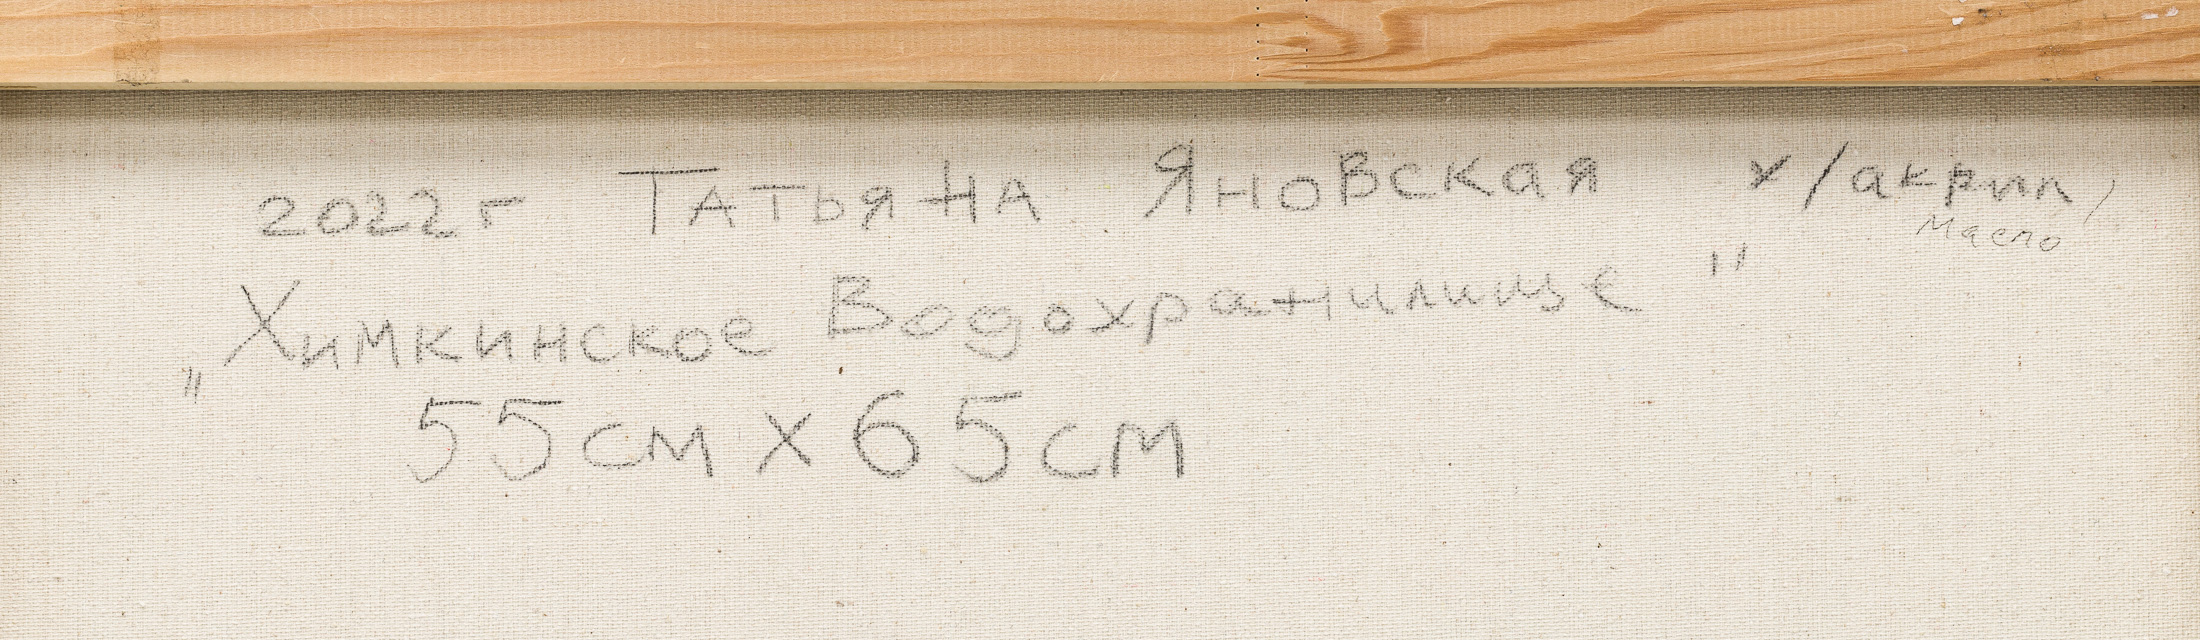 2022г Татьяна Яновская х/акрил,
масло
„Химкинское Водохранилище"
55см х 65см